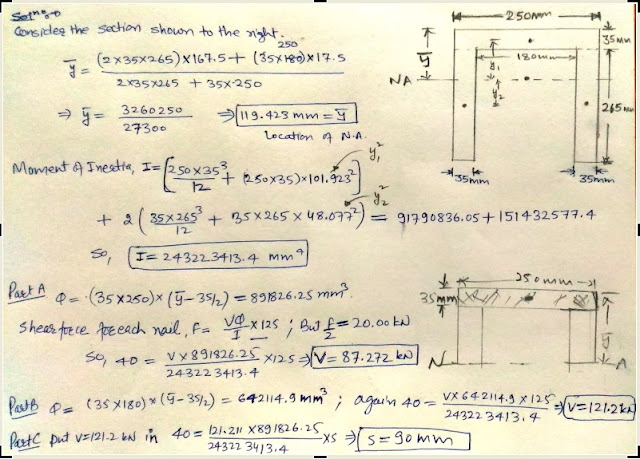 Solno:→
Consider the section shown to the right.
ȳ = (2×35×265)×167.5 + (35×250)×17.5 / 2×35×265 + 35×250
⇒ ȳ = 3260250 / 27300 ⇒ 119.423 mm = ȳ
Location of N.A.
Moment of Inertia, I = [250×35³/12 + (250×35)×101.923²] y₁²
+ 2(35×265³/12 + 35×265×48.077²) y₂² = 91790836.05 + 151432577.4
So, I = 243223413.4 mm⁴
Part A Q = (35×250)×(ȳ-35/2) = 891826.25 mm³.
Shear force for each nail, F = VQ/I ×125 ; But F/2 = 20.00 kN
So, 40 = V×891826.25 / 243223413.4 ×125 ⇒ V = 87.272 kN
Part B Q = (35×180)×(ȳ-35/2) = 642114.9 mm³ ; again 40 = V×642114.9×125 / 243223413.4 ⇒ V=121.2kN
Part C Put V=121.2 kN in 40 = 121.211×891826.25 / 243223413.4 ×S ⇒ S = 90mm
250mm
35mm
180mm
ȳ
y₁
NA
y₂
265mm
35mm
35mm
250mm
35mm
ȳ
N